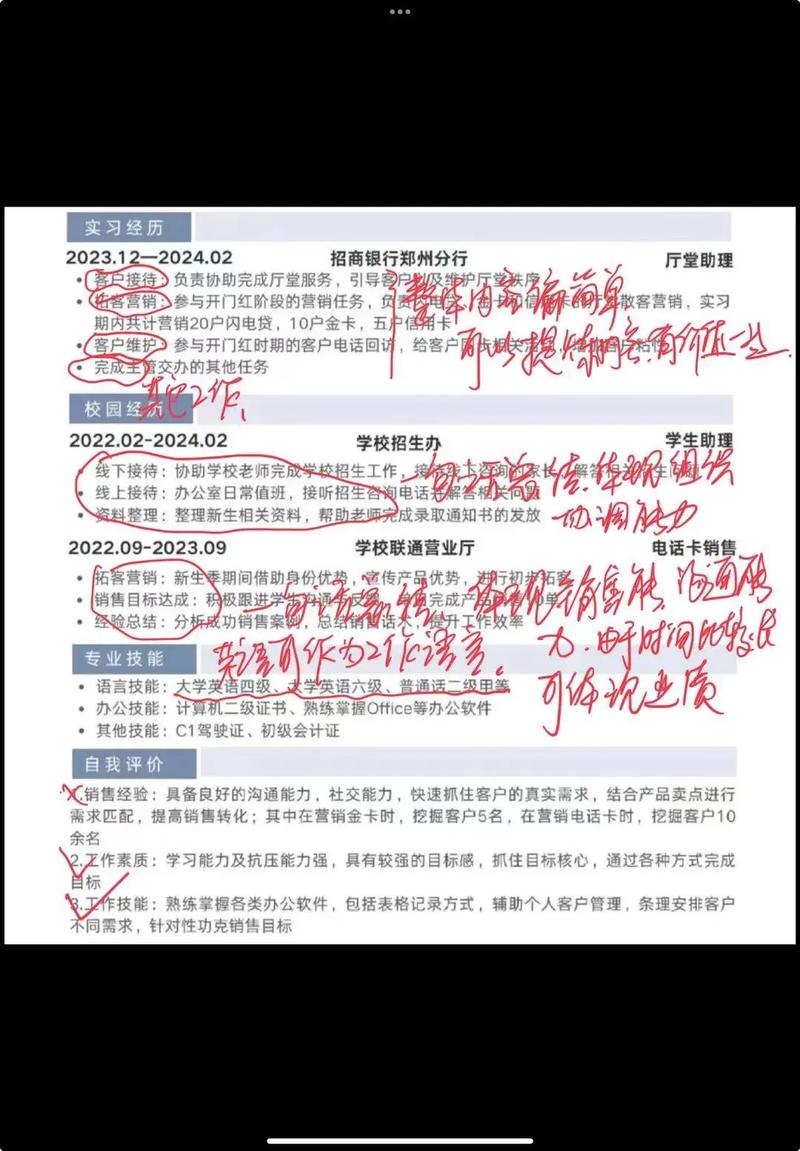 实习经历
2023.12—2024.02 招商银行郑州分行 厅堂助理
客户接待：负责协助完成厅堂服务，引导客户以及维护厅堂秩序
拓客营销：参与开门红阶段的营销任务，负责闪电贷、金卡和信用卡的散客营销，实习
期内共计营销20户闪电贷，10户金卡，五户信用卡
客户维护：参与开门红时期的客户电话回访，给客户
完成主管交办的其他任务
整体内容偏简单，
可以提炼
一些
其它工作
校园经历
2022.02-2024.02 学校招生办 学生助理
线下接待：协助学校老师完成学校招生工作，接待线下咨询的家长，解答相关
线上接待：办公室日常值班，接听招生咨询电话并解答相关问题
资料整理：整理新生相关资料，帮助老师完成录取通知书的发放
一句话总结，体现组织
协调能力
2022.09-2023.09 学校联通营业厅 电话卡销售
拓客营销：新生季期间借助身份优势，宣传产品优势，进行初步拓客
销售目标达成：积极跟进学生
经验总结：分析成功销售案例，总结销售话术，提升工作效率
一句话总结，体现销售能力，沟通能
力，由于时间比较长
可体现业绩
英语可作为工作语言。
专业技能
语言技能：大学英语四级、大学英语六级、普通话二级甲等
办公技能：计算机二级证书、熟练掌握Office等办公软件
其他技能：C1驾驶证、初级会计证
自我评价
1.销售经验：具备良好的沟通能力，社交能力，快速抓住客户的真实需求，结合产品卖点进行
需求匹配，提高销售转化；其中在营销金卡时，挖掘客户5名，在营销电话卡时，挖掘客户10
余名
2.工作素质：学习能力及抗压能力强，具有较强的目标感，抓住目标核心，通过各种方式完成
目标
3.工作技能：熟练掌握各类办公软件，包括表格记录方式，辅助个人客户管理，条理安排客户
不同需求，针对性功克销售目标